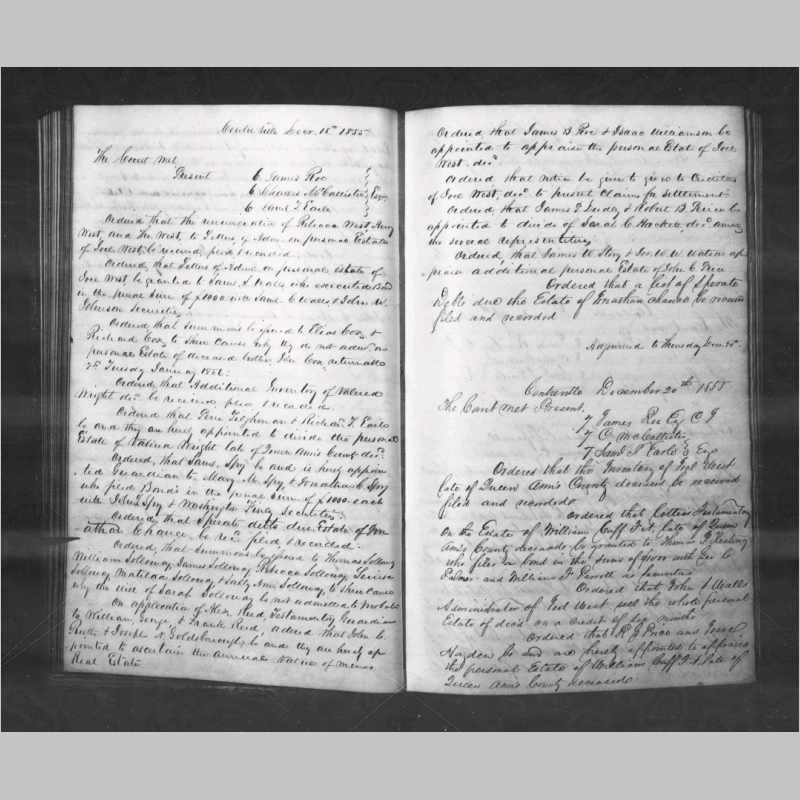 Centreville Decr. 18th 1855
The Court met
Present 6 James Roe
6 Edward McCallister Esqs
6 Saml T Earle
Ordered that the renunciation of Rebecca West Henry
West, and Wm West, to Letters of Admn on personal Estate
of Joel West, be received, filed & recorded.
Ordered, that Letters of Admn. on personal estate of
Joel West be granted to James S. Walls who executed a Bond
in the penal sum of $1000 with Saml C Walls & John W.
Johnson Securities.
Ordered that summons be issued to Elias Cox, &
Richard Cox, to Shew Cause why they do not admr. on
personal Estate of deceased brother John Cox, returnable
2d. Tuesday January 1856.
Ordered, that Additional Inventory of Valerea
Wright decd. be received filed & recorded.
Ordered that Tilghman & Richard T. Earle
be and they are hereby appointed to divide the personal
Estate of Wright late of Queen Ann's County decd.
Ordered, that Saml. Spry be and is hereby appoin
ted Guardian to Mary M. Spry & Jonathan C. Spry
who filed Bonds in the penal Sum of $1000 each
with John Spry & Washington Finley Securities.
Ordered that Sperate debts due Estate of Jon
athan Chance be recd. filed & recorded.
Ordered, that Summons be issued to Thomas Solloway
William Solloway, James Solloway, Rebecca Solloway, Teresa
Solloway, Matilda Solloway & Sally Ann Solloway, to Shew Cause
why the will of Sarah Solloway be not admitted to Probate
On application of Reed, Testamentary Guardian
to William, George, & Frank Reed, ordered that John C.
Ruth & Joseph N. Goldsborough, be and they are hereby ap
pointed to ascertain the annual value of minors
Real Estate
Ordered, that James B Roe & Isaac Williamson be
appointed to appraise the personal Estate of Joel
West decd.
Ordered that notice be given to Creditors
of Joel West, decd. to present Claims for settlement
Ordered that James T & Robert B. Price be
appointed to divide of Isaac C. decd. among
the several representatives
Ordered, that James W Story & W. W. Watson ap
praise additional personal Estate of John C Price
Ordered that a list of Sperate
Debts due the Estate of Jonathan Chance be received
filed and recorded
Adjourned to Thursday Decr. 20th.
Centreville December 20th 1855
The Court met Present.
7 James Roe Esq C J
7 E McCallister
7 Saml T. Earle Esqs
Ordered that the Inventory of Joel West
late of Queen Ann's County deceased be received
filed and recorded.
Ordered that Letters Testamentary
on the Estate of William Cuff F.N. late of Queen
Ann's County deceased be granted to Thomas J. Keating
who files a bond in the sum of $1000 with Geo C
Palmer and William F. Perrott as Sureties
Ordered that John S Walls
Administrator of Joel West sell the whole personal
Estate of decd on a credit of Six months
Ordered that R. J Price and
Hayden be and are hereby appointed to appraise
the personal Estate of William Cuff F N late of
Queen Ann's County deceased.